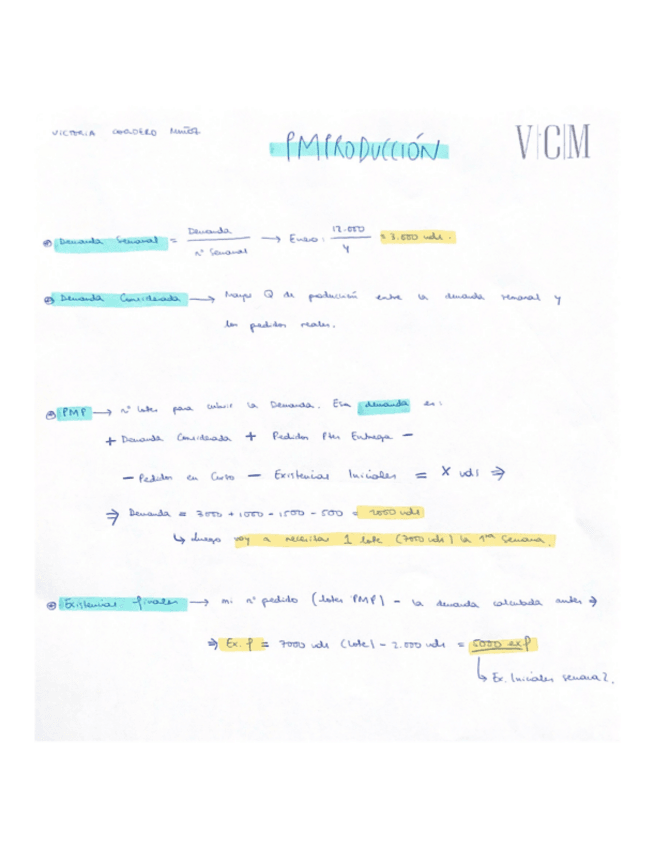 VICTORIA CORDERO MUÑOZ
PMPRODUCCIÓN
V|C|M
Demanda Semanal = Demanda / nº Semanal → Enero: 12.000 / 4 = 3.000 uds.
Demanda Considerada → Mayor Q de producción entre la demanda semanal y
los pedidos reales.
PMP → nº lotes para cubrir la Demanda. Esa demanda es:
+ Demanda Considerada + Pedidos Ptes Entrega -
- Pedidos en Curso - Existencias Iniciales = X uds ⇒
⇒ Demanda = 3000 + 1000 - 1500 - 500 = 2000 uds
↳ Luego voy a necesitar 1 lote (7000 uds) la 1ra Semana.
Existencias finales → mi nº pedido (lotes PMP) - la demanda calculada antes ⇒
⇒ Ex. f = 7000 uds (lote) - 2.000 uds = 5000 exf
↳ Ex. Iniciales semana 2.